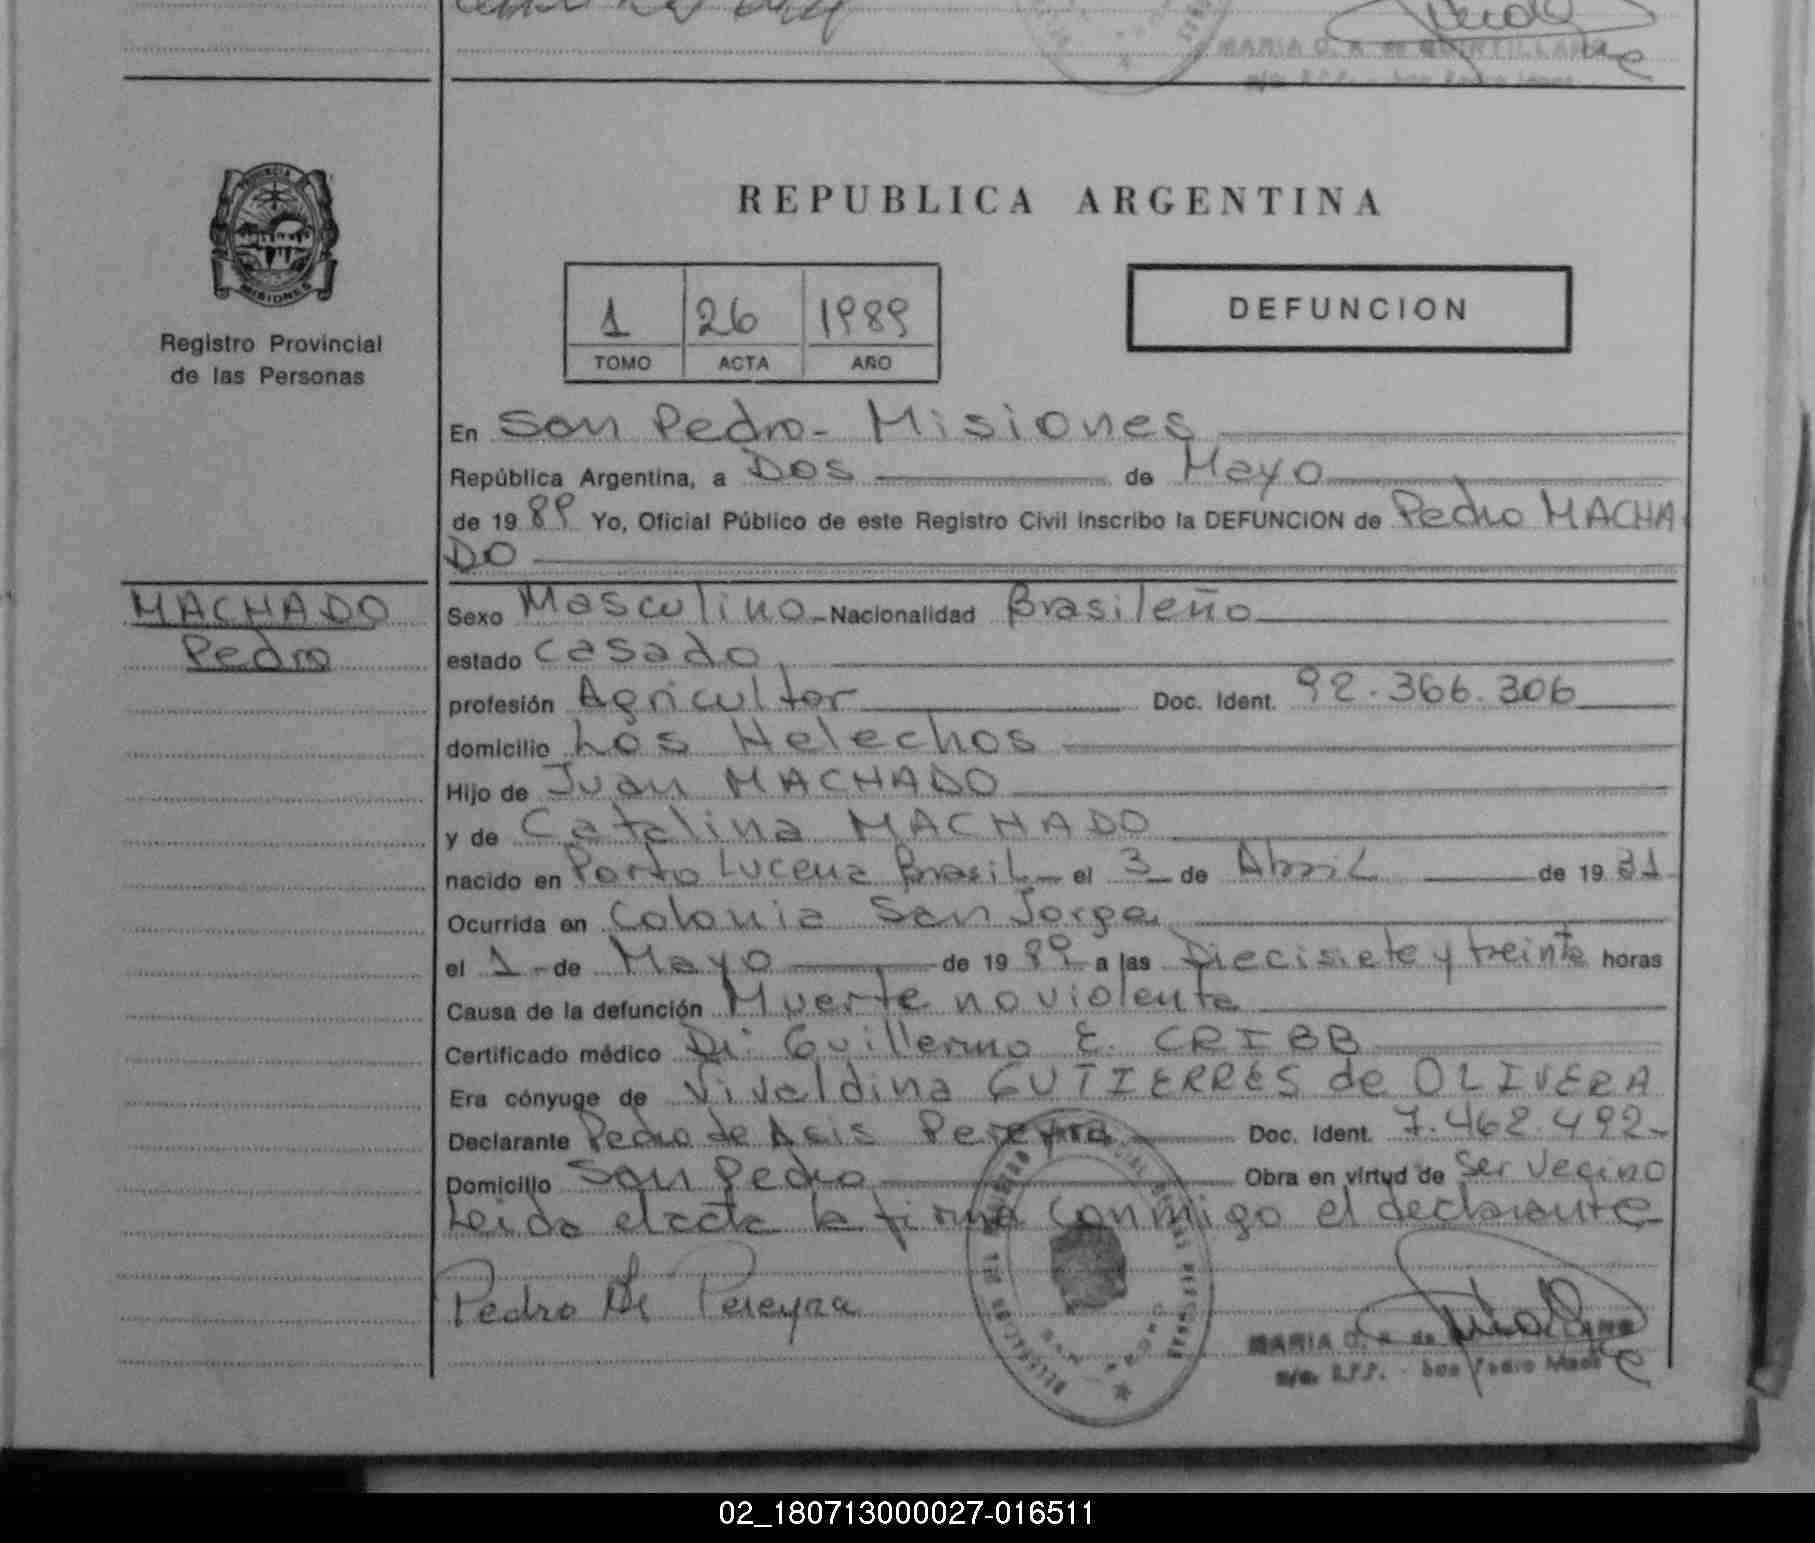 MARIA O. A. de QUINTILLANA
PROVINCIA
MISIONES
Registro Provincial
de las Personas
REPUBLICA ARGENTINA
1 26 1989
TOMO ACTA AÑO
DEFUNCION
En San Pedro - Misiones
República Argentina, a Dos de Mayo
de 19 89 Yo, Oficial Público de este Registro Civil inscribo la DEFUNCION de Pedro MACHA
DO
MACHADO
Pedro
Sexo Masculino - Nacionalidad Brasileño
estado casado
profesión Agricultor Doc. Ident. 92.366.306
domicilio Los Helechos
Hijo de Juan MACHADO
y de Catalina MACHADO
nacido en Porto Lucena Brasil - el 3 de Abril de 19 31
Ocurrida en Colonia San Jorge
el 1 - de Mayo de 19 89 a las Diecisiete y treinta horas
Causa de la defunción Muerte no violenta
Certificado médico Dr. Guillermo E. CRIBB
Era cónyuge de Vivaldina GUTIERRES de OLIVERA
Declarante Pedro de Asis Pereyra Doc. Ident. 7.462.492-
Domicilio San Pedro Obra en virtud de Ser Vecino
Leida el acta la firma conmigo el declarante
Pedro de Pereyra
MARIA O. A. de
R.P.P. - San Pedro Mnes
02_180713000027-016511